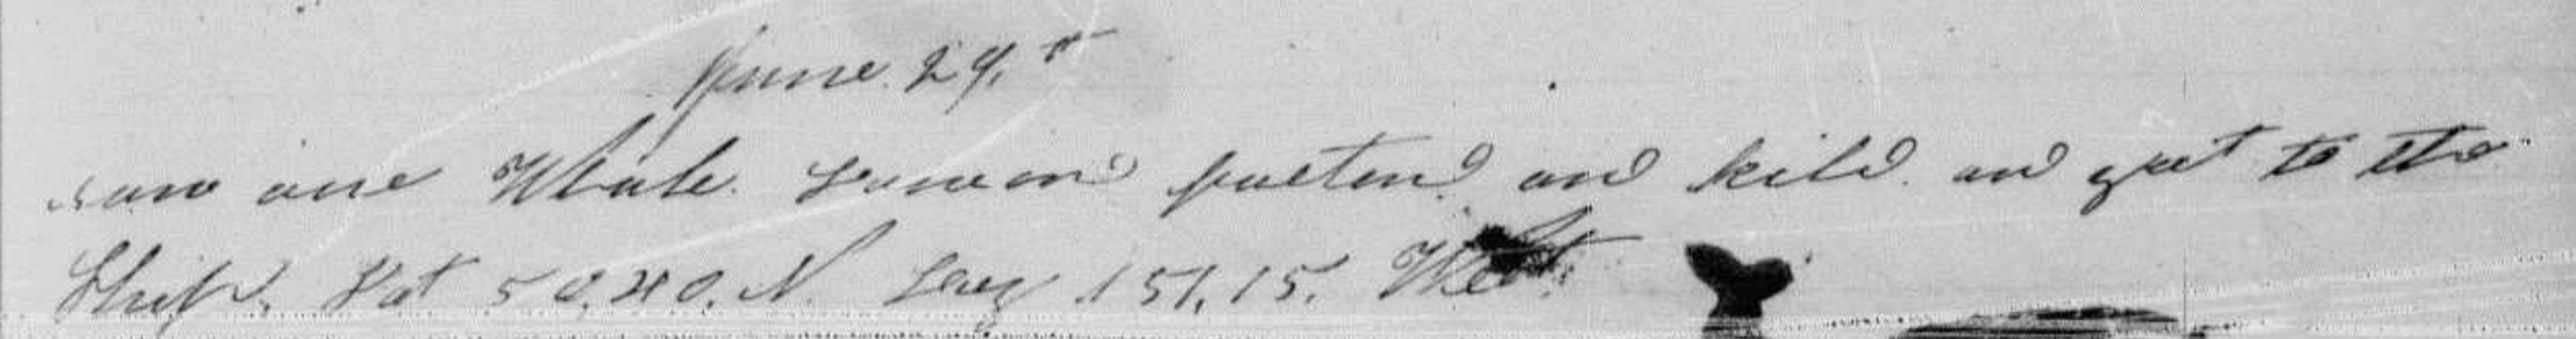 June 29,th
saw one Whale. and kild. and got to the
Ship. Lat 50,40, N. Long 151,15, West.